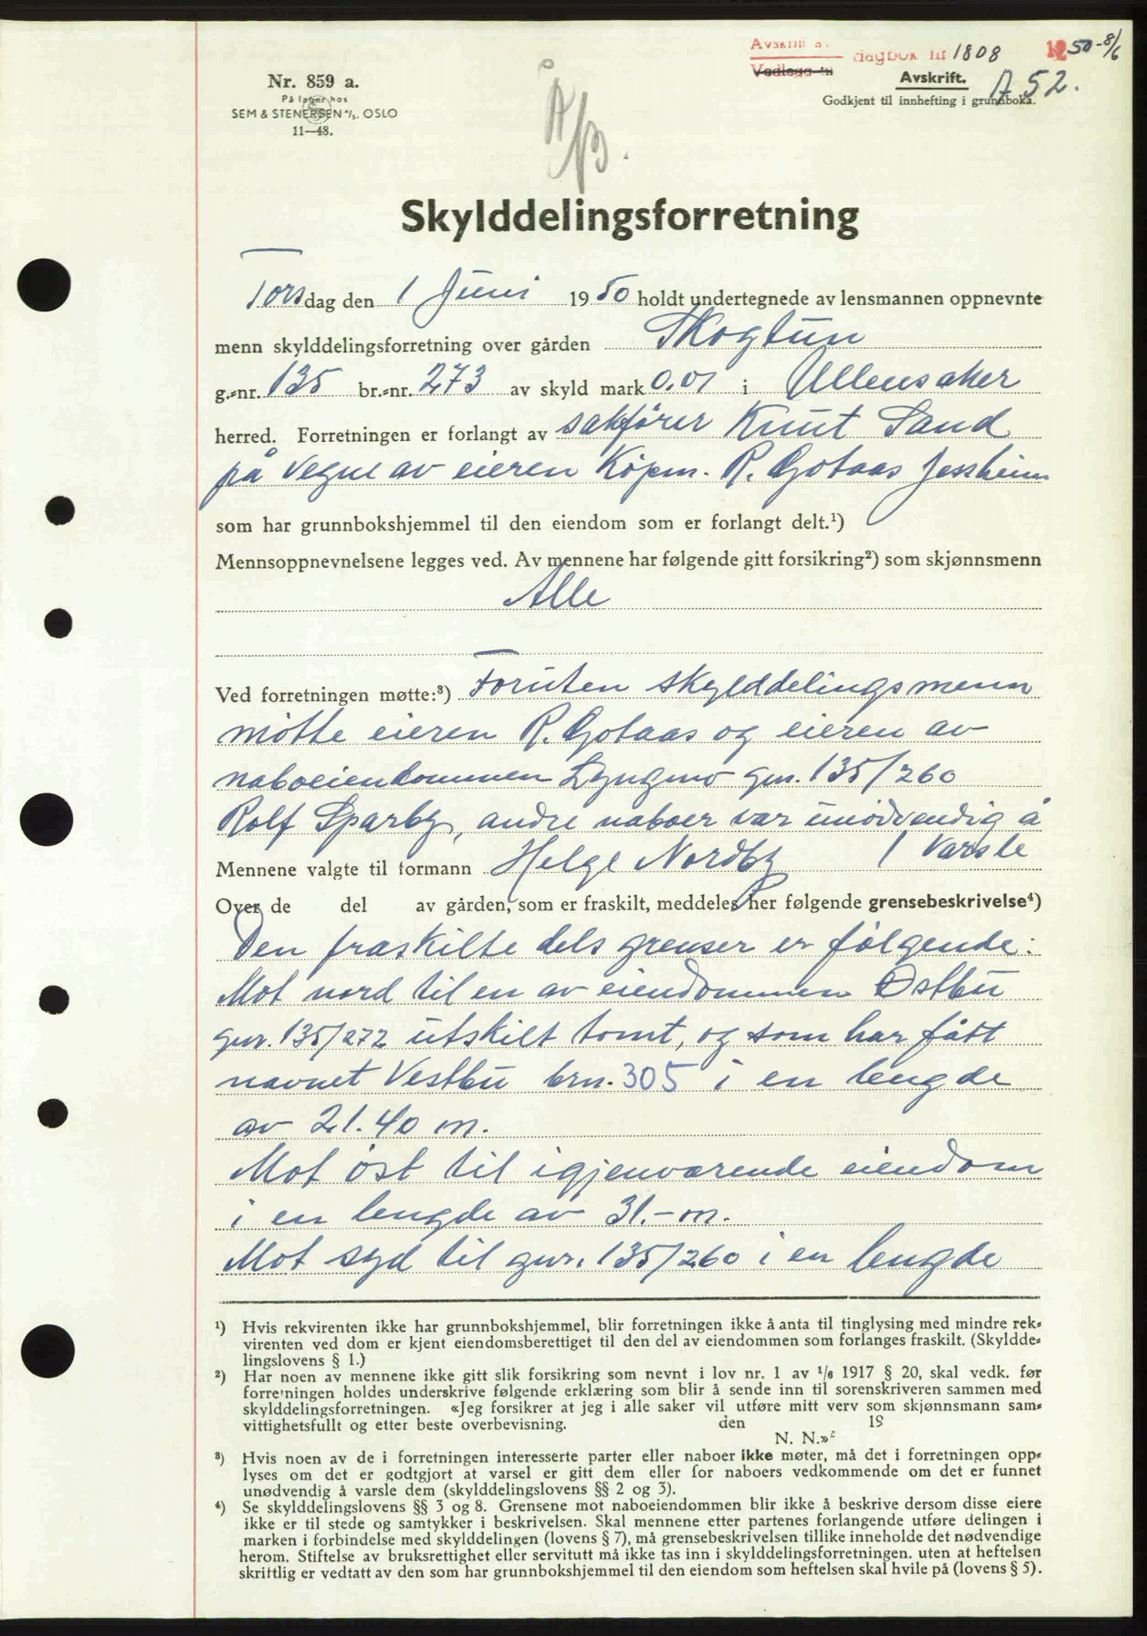 Avskrift av dagbok nr 1808 1950-8/6
Vedlegg nr
Avskrift.
A52.
Godkjent til innhefting i grunnboka.
Nr. 859 a.
På lager hos
SEM & STENERSEN A/S. OSLO
11—48.
Skylddelingsforretning
Torsdag den 1 Juni 1950 holdt undertegnede av lensmannen oppnevnte
menn skylddelingsforretning over gården Skogtun
g.-nr. 135 br.-nr. 273 av skyld mark 0.01 i Ullensaker
herred. Forretningen er forlangt av sakfører Knut Sand
på vegne av eieren Kjøpm. R. Gotaas Jessheim
som har grunnbokshjemmel til den eiendom som er forlangt delt.¹)
Mennsoppnevnelsene legges ved. Av mennene har følgende gitt forsikring²) som skjønnsmenn
Alle
Ved forretningen møtte:³) Foruten skylddelingsmenn
møtte eieren R. Gotaas og eieren av
naboeiendommen Lyngmo gnr. 135/260
Rolf Sparby, andre naboer var unødvendig å
Mennene valgte til formann Helge Nordby / varsle
Over de del av gården, som er fraskilt, meddeles her følgende grensebeskrivelse⁴)
Den fraskilte dels grenser er følgende:
Mot nord til en av eiendommen Østbu
gnr. 135/272 utskilt tomt, og som har fått
navnet Vestbu brn. 305 i en lengde
av 21.40 m.
Mot øst til igjenværende eiendom
i en lengde av 31.- m.
Mot syd til gnr. 135/260 i en lengde
¹) Hvis rekvirenten ikke har grunnbokshjemmel, blir forretningen ikke å anta til tinglysing med mindre rek-
virenten ved dom er kjent eiendomsberettiget til den del av eiendommen som forlanges fraskilt. (Skyldde-
lingslovens § 1.)
²) Har noen av mennene ikke gitt slik forsikring som nevnt i lov nr. 1 av 1/6 1917 § 20, skal vedk. før
forretningen holdes underskrive følgende erklæring som blir å sende inn til sorenskriveren sammen med
skylddelingsforretningen. «Jeg forsikrer at jeg i alle saker vil utføre mitt verv som skjønnsmann sam-
vittighetsfullt og etter beste overbevisning. den 19
N. N.»
³) Hvis noen av de i forretningen interesserte parter eller naboer ikke møter, må det i forretningen opp-
lyses om det er godtgjort at varsel er gitt dem eller for naboers vedkommende om det er funnet
unødvendig å varsle dem (skylddelingslovens §§ 2 og 3).
⁴) Se skylddelingslovens §§ 3 og 8. Grensene mot naboeiendommen blir ikke å beskrive dersom disse eiere
ikke er til stede og samtykker i beskrivelsen. Skal mennene etter partenes forlangende utføre delingen i
marken i forbindelse med skylddelingen (lovens § 7), må grensebeskrivelsen tillike inneholde det nødvendige
herom. Stiftelse av bruksrettighet eller servitutt må ikke tas inn i skylddelingsforretningen. uten at heftelsen
skriftlig er vedtatt av den som har grunnbokshjemmel til den eiendom som heftelsen skal hvile på (lovens § 5).